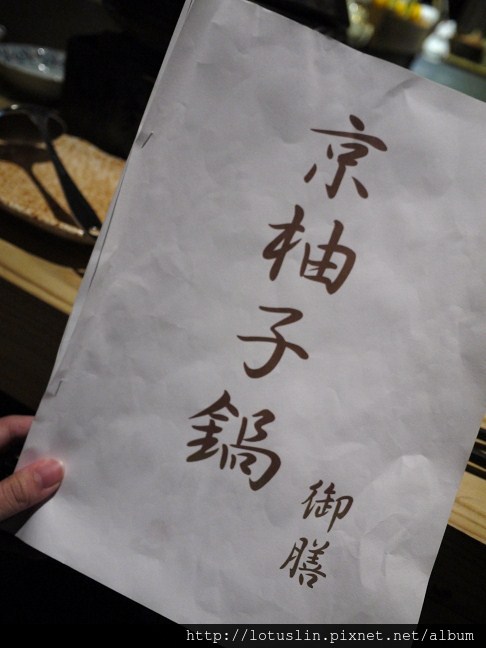 京柚子鍋
御膳
http://lotuslin.pixnet.net/album